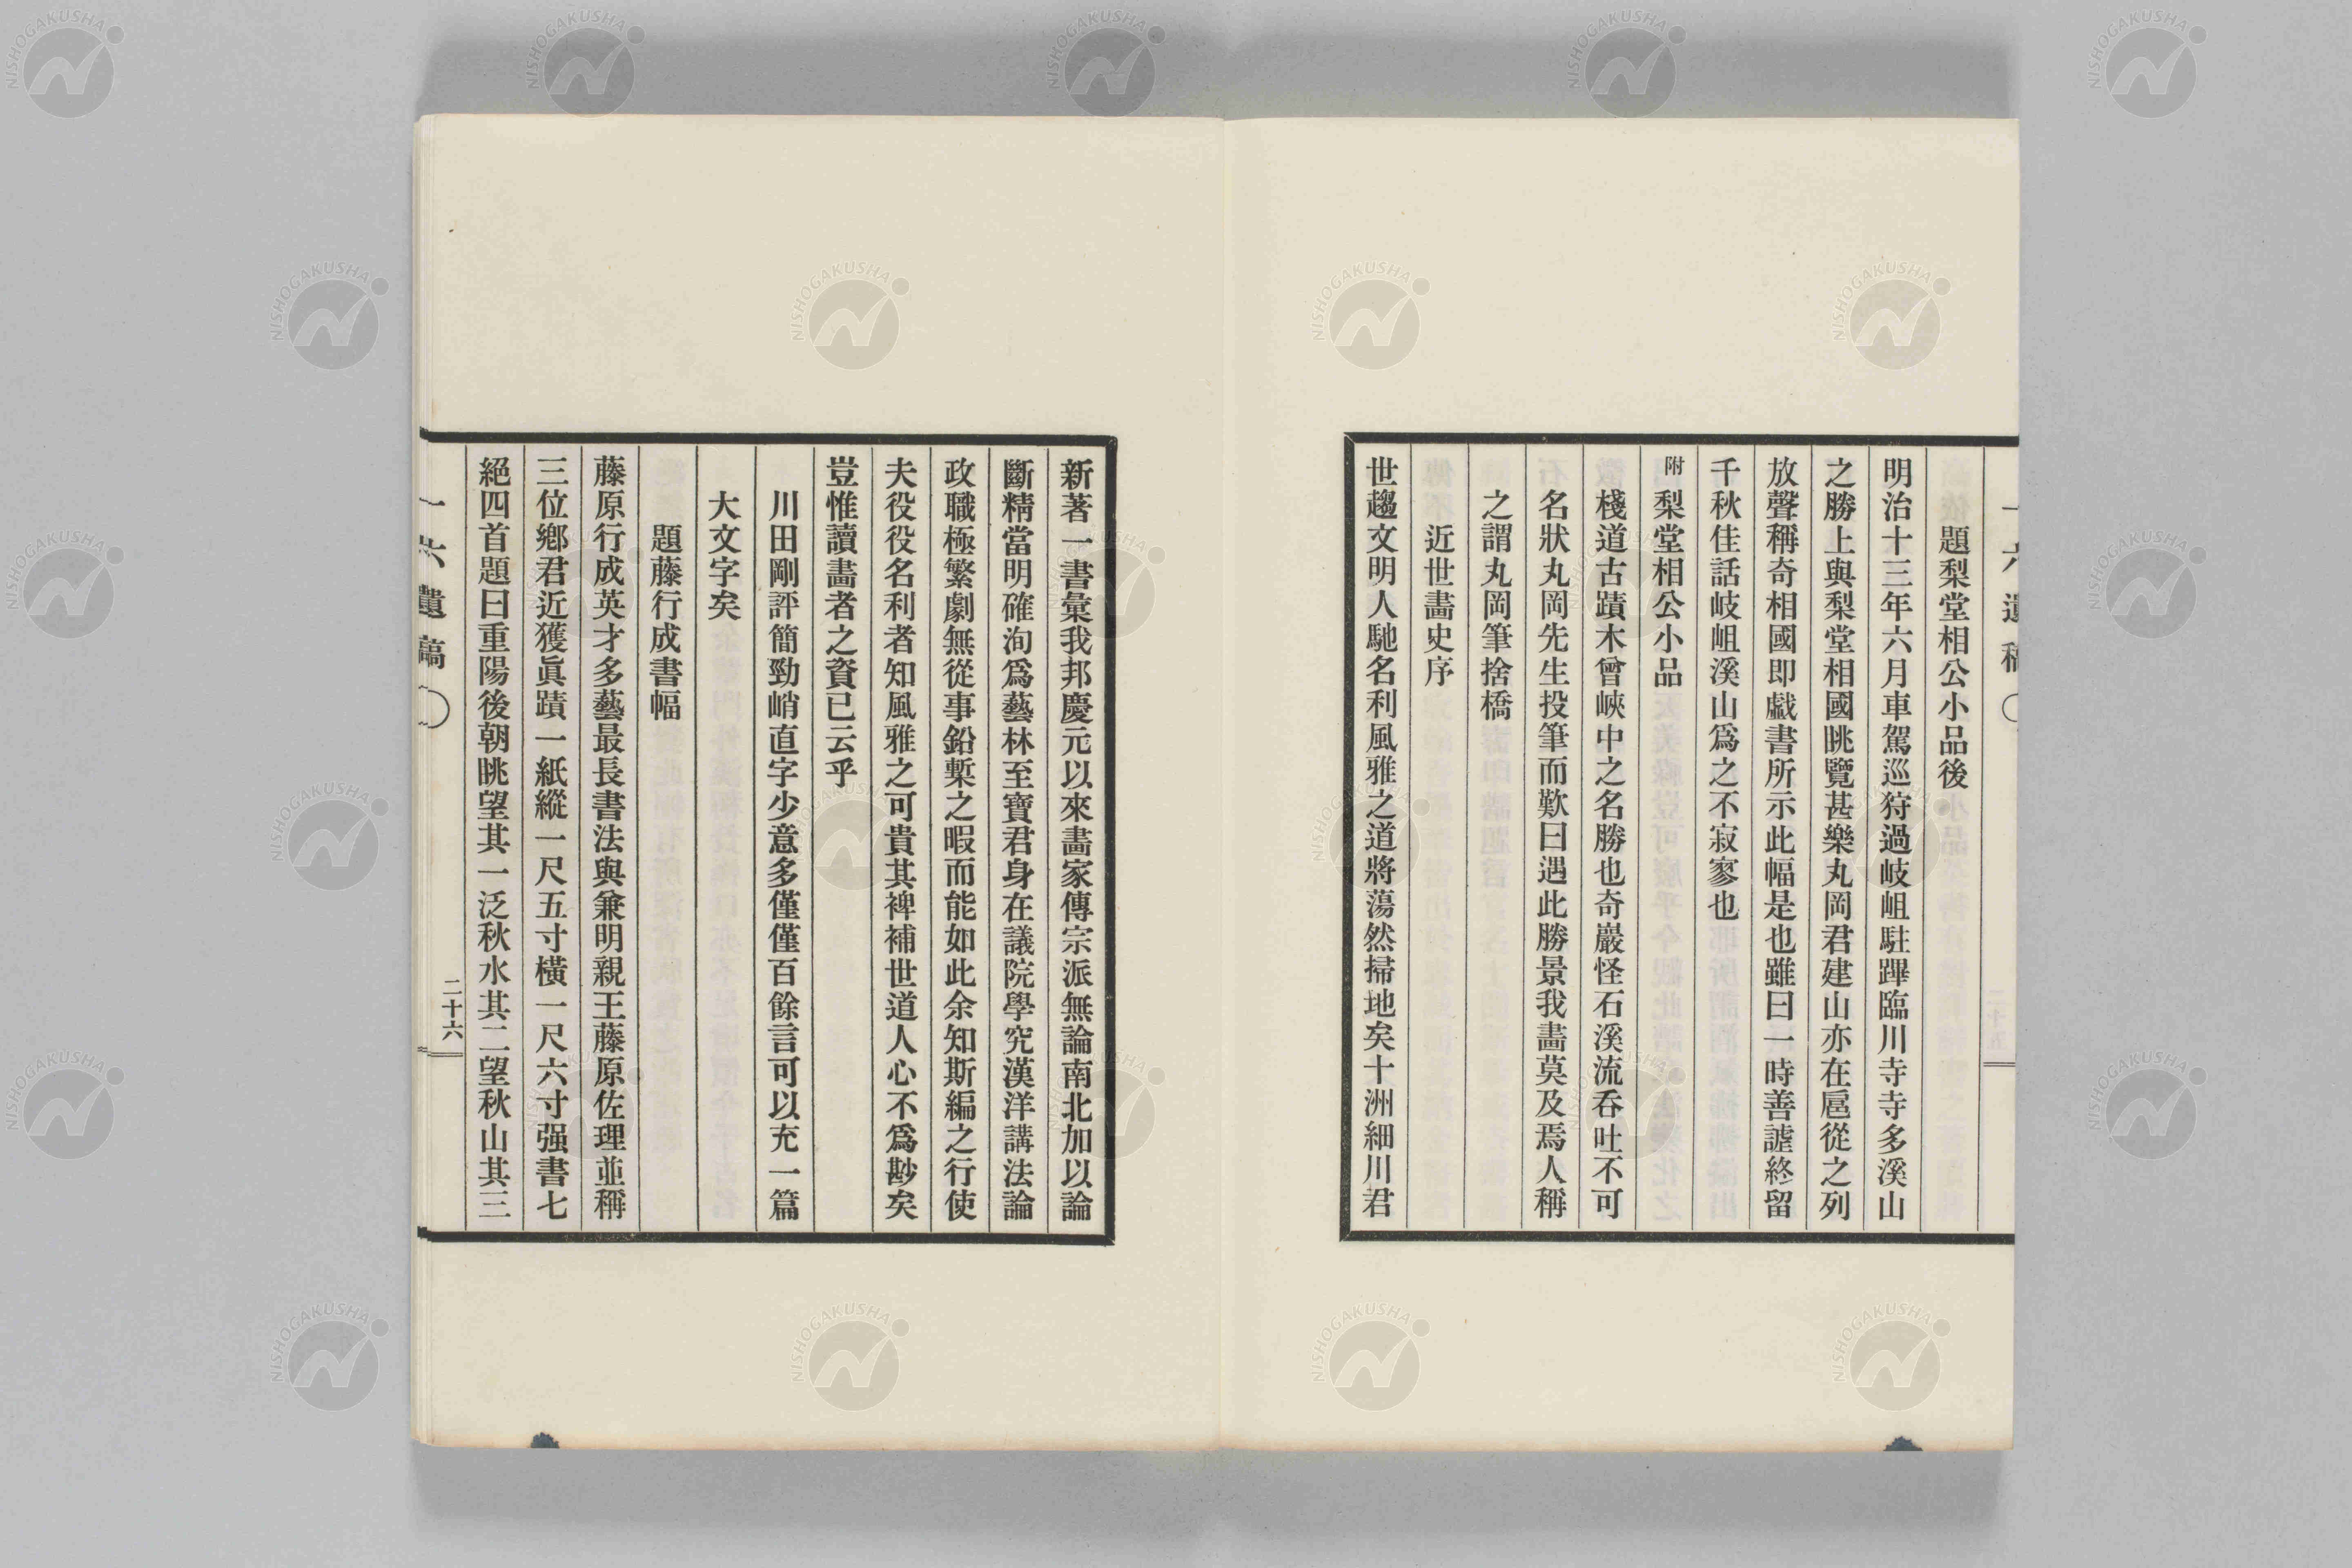 題梨堂相公小品後
明治十三年六月車駕巡狩過岐岨駐蹕臨川寺寺多溪山
之勝上與梨堂相國眺覽甚樂丸岡君建山亦在扈從之列
放聲稱奇相國即戲書所示此幅是也雖曰一時善謔終留
千秋佳話岐岨溪山爲之不寂寥也
附梨堂相公小品
棧道古蹟木曾峽中之名勝也奇巖怪石溪流呑吐不可
名狀丸岡先生投筆而歎曰遇此勝景我畫莫及焉人稱
之謂丸岡筆捨橋
近世畵史序
世趨文明人馳名利風雅之道將蕩然掃地矣十洲細川君
新著一書彙我邦慶元以來畵家傳宗派無論南北加以論
斷精當明確洵爲藝林至寶君身在議院學究漢洋講法論
政職極繁劇無從事鉛槧之暇而能如此余知斯編之行使
夫役役名利者知風雅之可貴其裨補世道人心不爲尠矣
豈惟讀畵者之資已云乎
川田剛評簡勁峭直字少意多僅僅百餘言可以充一篇
大文字矣
題藤行成書幅
藤原行成英才多藝最長書法與兼明親王藤原佐理並稱
三位鄕君近獲眞蹟一紙縱一尺五寸橫一尺六寸强書七
絕四首題曰重陽後朝眺望其一泛秋水其二望秋山其三
一六遺稿
二十六
NISHOGAKUSHA